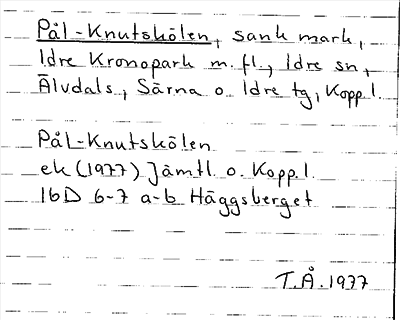 Pål-Knutskölen, sank mark,
Idre Kronopark m.fl., Idre sn,
Älvdals, Särna o. Idre tg, Kopp.l.
Pål-Knutskölen
ek (1977) Jämtl. o. Kopp.l.
16D 6-7 a-b Häggsberget
T.Å. 1977